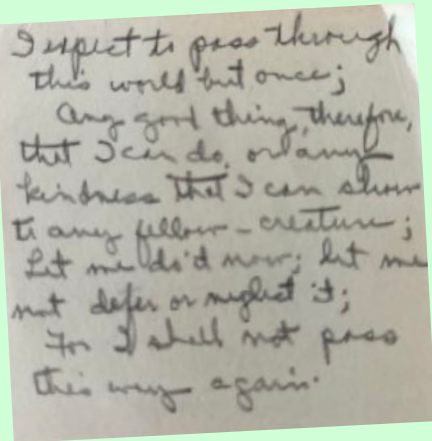 I expect to pass through
this world but once;
Any good thing, therefore,
that I can do, or any
kindness that I can show
to any fellow-creature;
Let me do it now; let me
not defer or neglect it;
For I shall not pass
this way again.